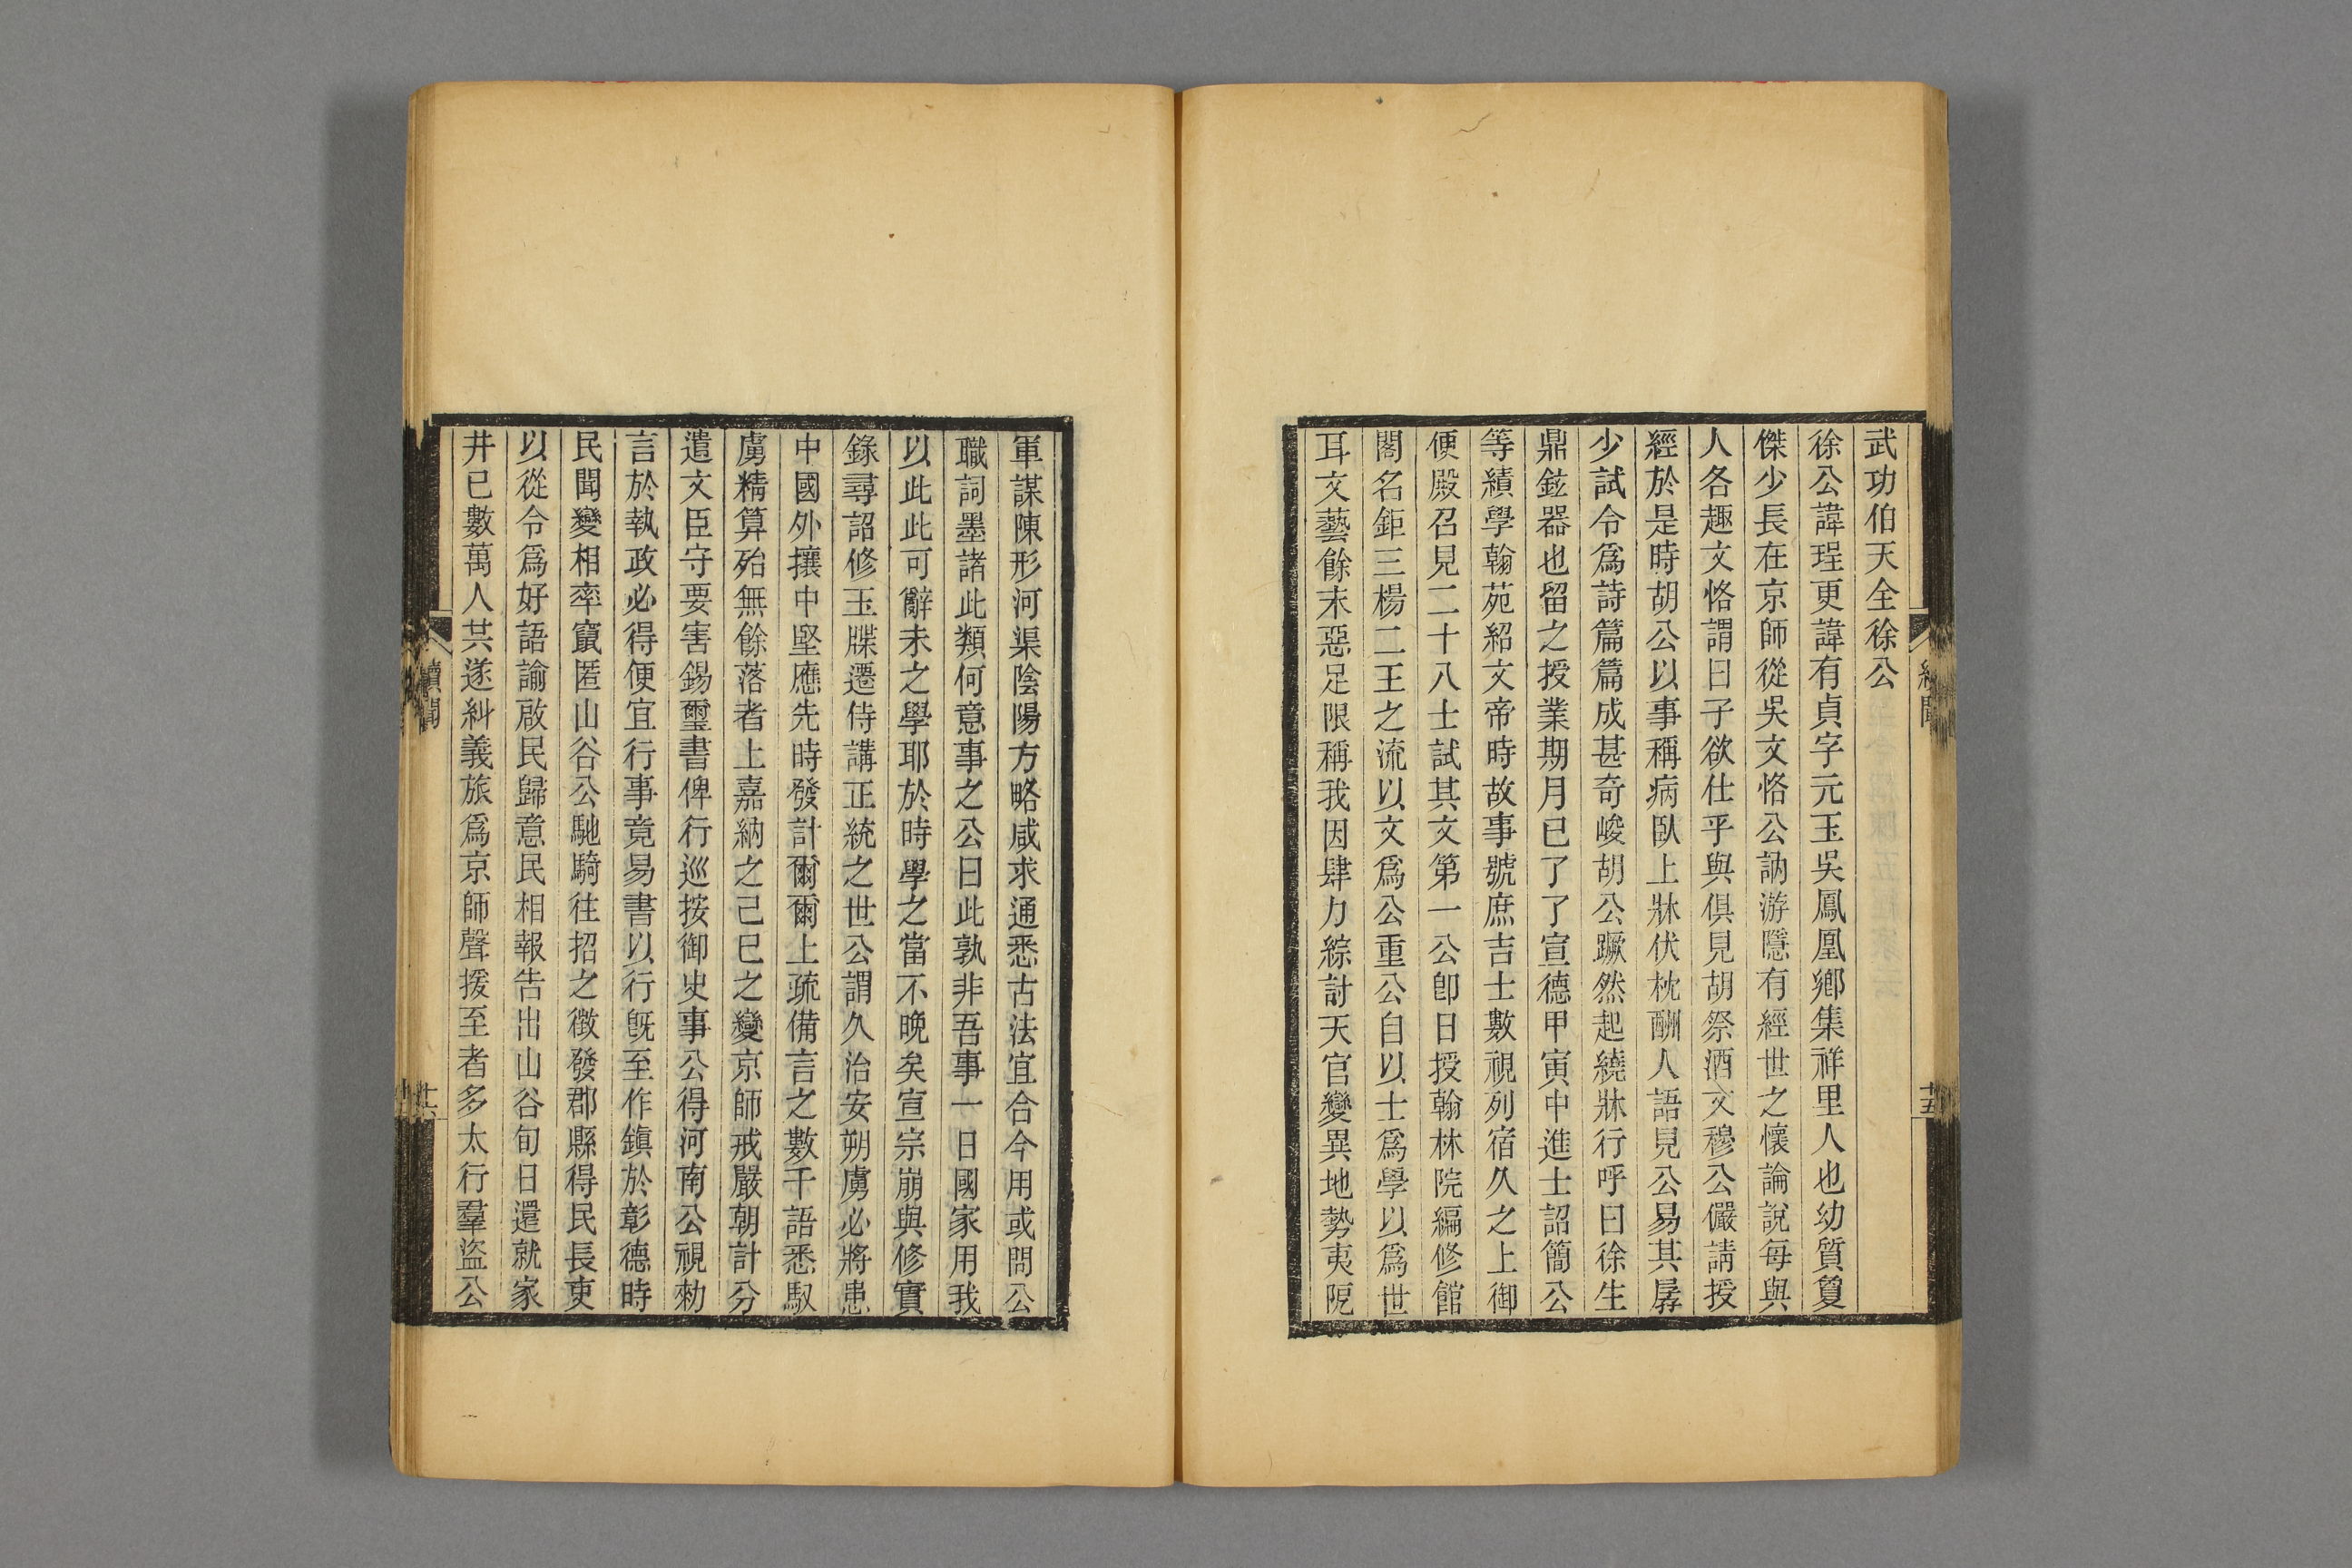 武功伯天全徐公
徐公諱珵更諱有貞字元玉吳鳳凰鄉集祥里人也幼質敻
傑少長在京師從吳文恪公訥游隱有經世之懷論說每與
人各趣文恪謂曰子欲仕乎與俱見胡祭酒文穆公儼請授
經於是時胡公以事稱病臥上牀伏枕酬人語見公易其孱
少試令爲詩篇篇成甚奇峻胡公蹶然起繞牀行呼曰徐生
鼎鉉器也留之授業期月已了了宣德甲寅中進士詔簡公
等績學翰苑紹文帝時故事號庶吉士數視列宿久之上御
便殿召見二十八士試其文第一公卽日授翰林院編修館
閣名鉅三楊二王之流以文爲公重公自以士爲學以爲世
耳文藝餘末惡足限稱我因肆力綜討天官變異地勢夷阨
軍謀陳形河渠陰陽方略咸求通悉古法宜合今用或問公
職詞墨諸此類何意事之公曰此孰非吾事一日國家用我
以此此可辭未之學耶於時學之當不晚矣宣宗崩與修實
錄尋詔修玉牒遷侍講正統之世公謂久治安朔虜必將患
中國外攘中堅應先時發計爾爾上疏備言之數千語悉馭
虜精算殆無餘落者上嘉納之己巳之變京師戒嚴朝計分
遣文臣守要害錫璽書俾行巡按御史事公得河南公視勑
言於執政必得便宜行事竟易書以行旣至作鎭於彰德時
民聞變相率竄匿山谷公馳騎往招之徵發郡縣得民長吏
以從令爲好語諭啟民歸意民相報告出山谷旬日還就家
井已數萬人其遂糾義旅爲京師聲援至者多太行羣盜公
續聞
十六